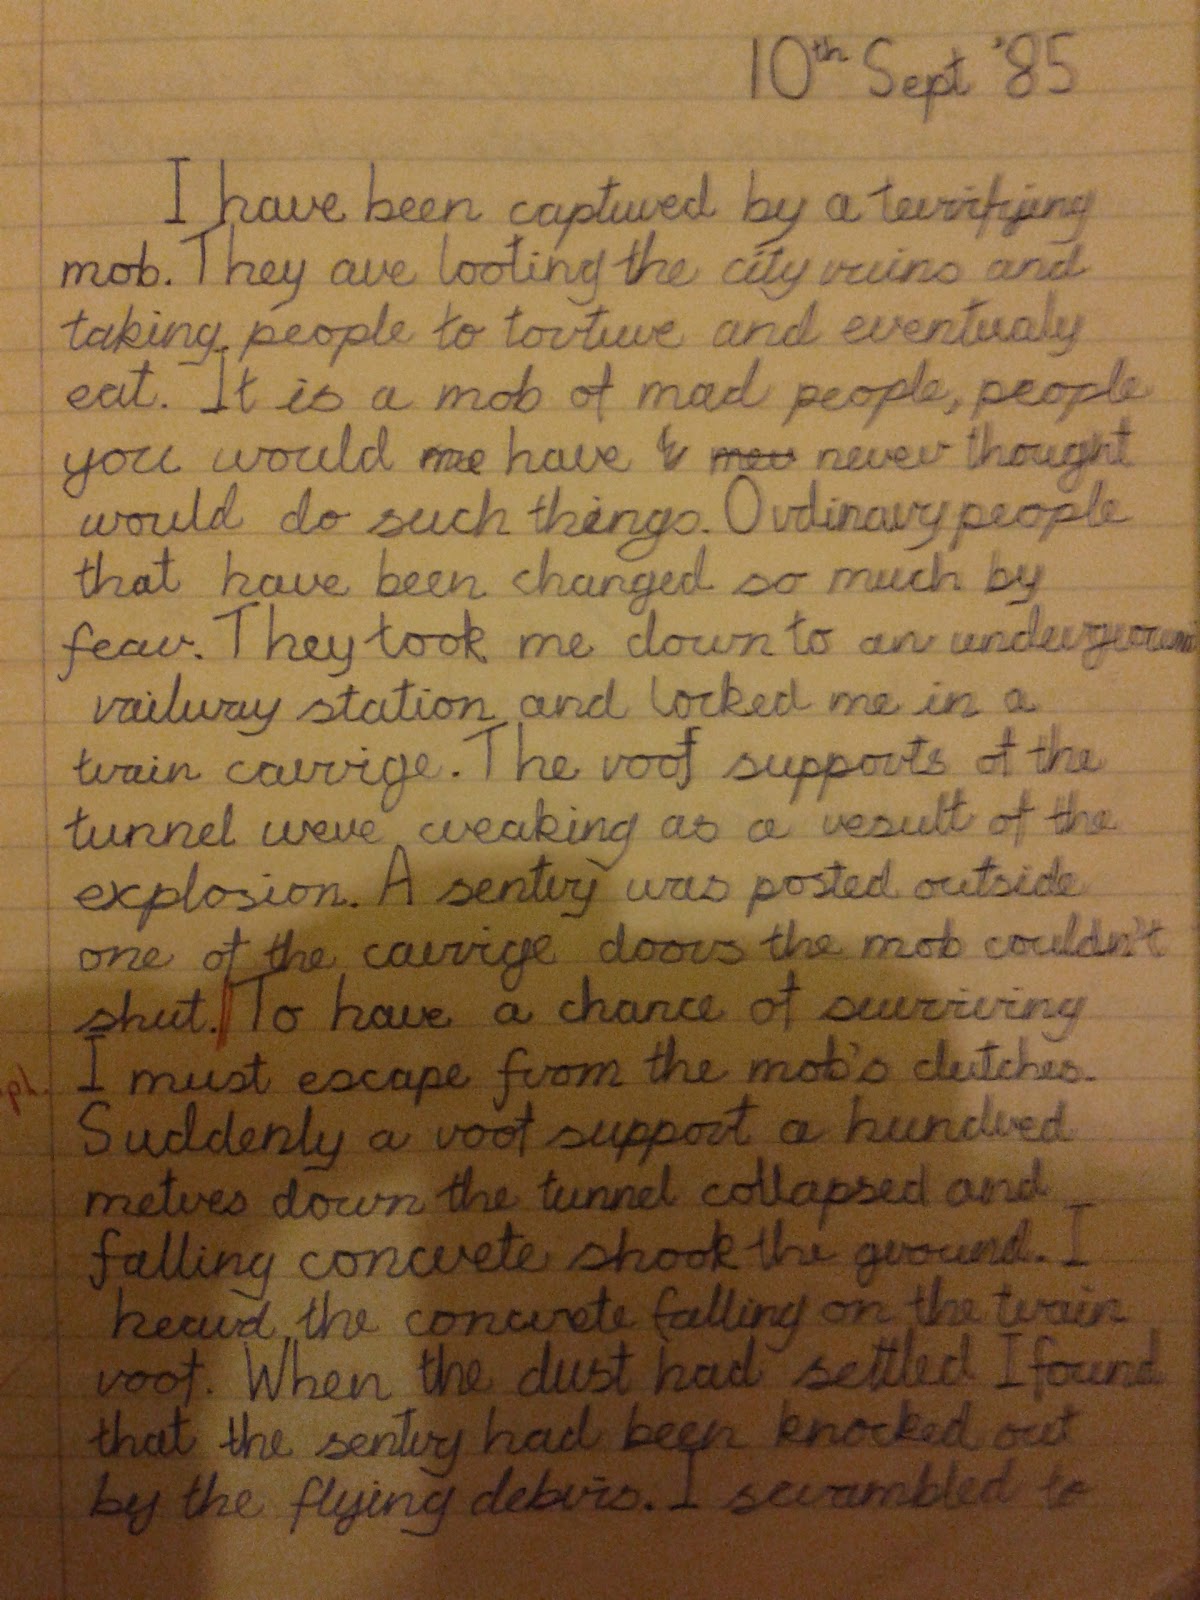 10th Sept '85
I have been captured by a terrifying
mob. They are looting the city ruins and
taking people to torture and eventualy
eat. It is a mob of mad people, people
you would me have & mev never thought
would do such things. Ordinary people
that have been changed so much by
fear. They took me down to an underground
railway station and locked me in a
train carrige. The roof supports of the
tunnel were creaking as a result of the
explosion. A sentry was posted outside
one of the carrige doors the mob couldn't
shut. To have a chance of surriving
spl. I must escape from the mob's clutches.
Suddenly a roof support a hundred
metres down the tunnel collapsed and
falling concrete shook the ground. I
heard the concrete falling on the train
roof. When the dust had settled I found
that the sentry had been knocked out
by the flying debris. I scrambled to